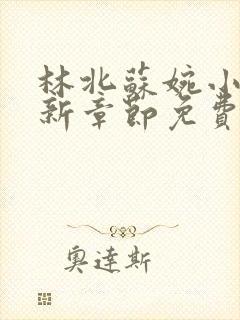 林北蘇婉小
新章節免費
奧達斯